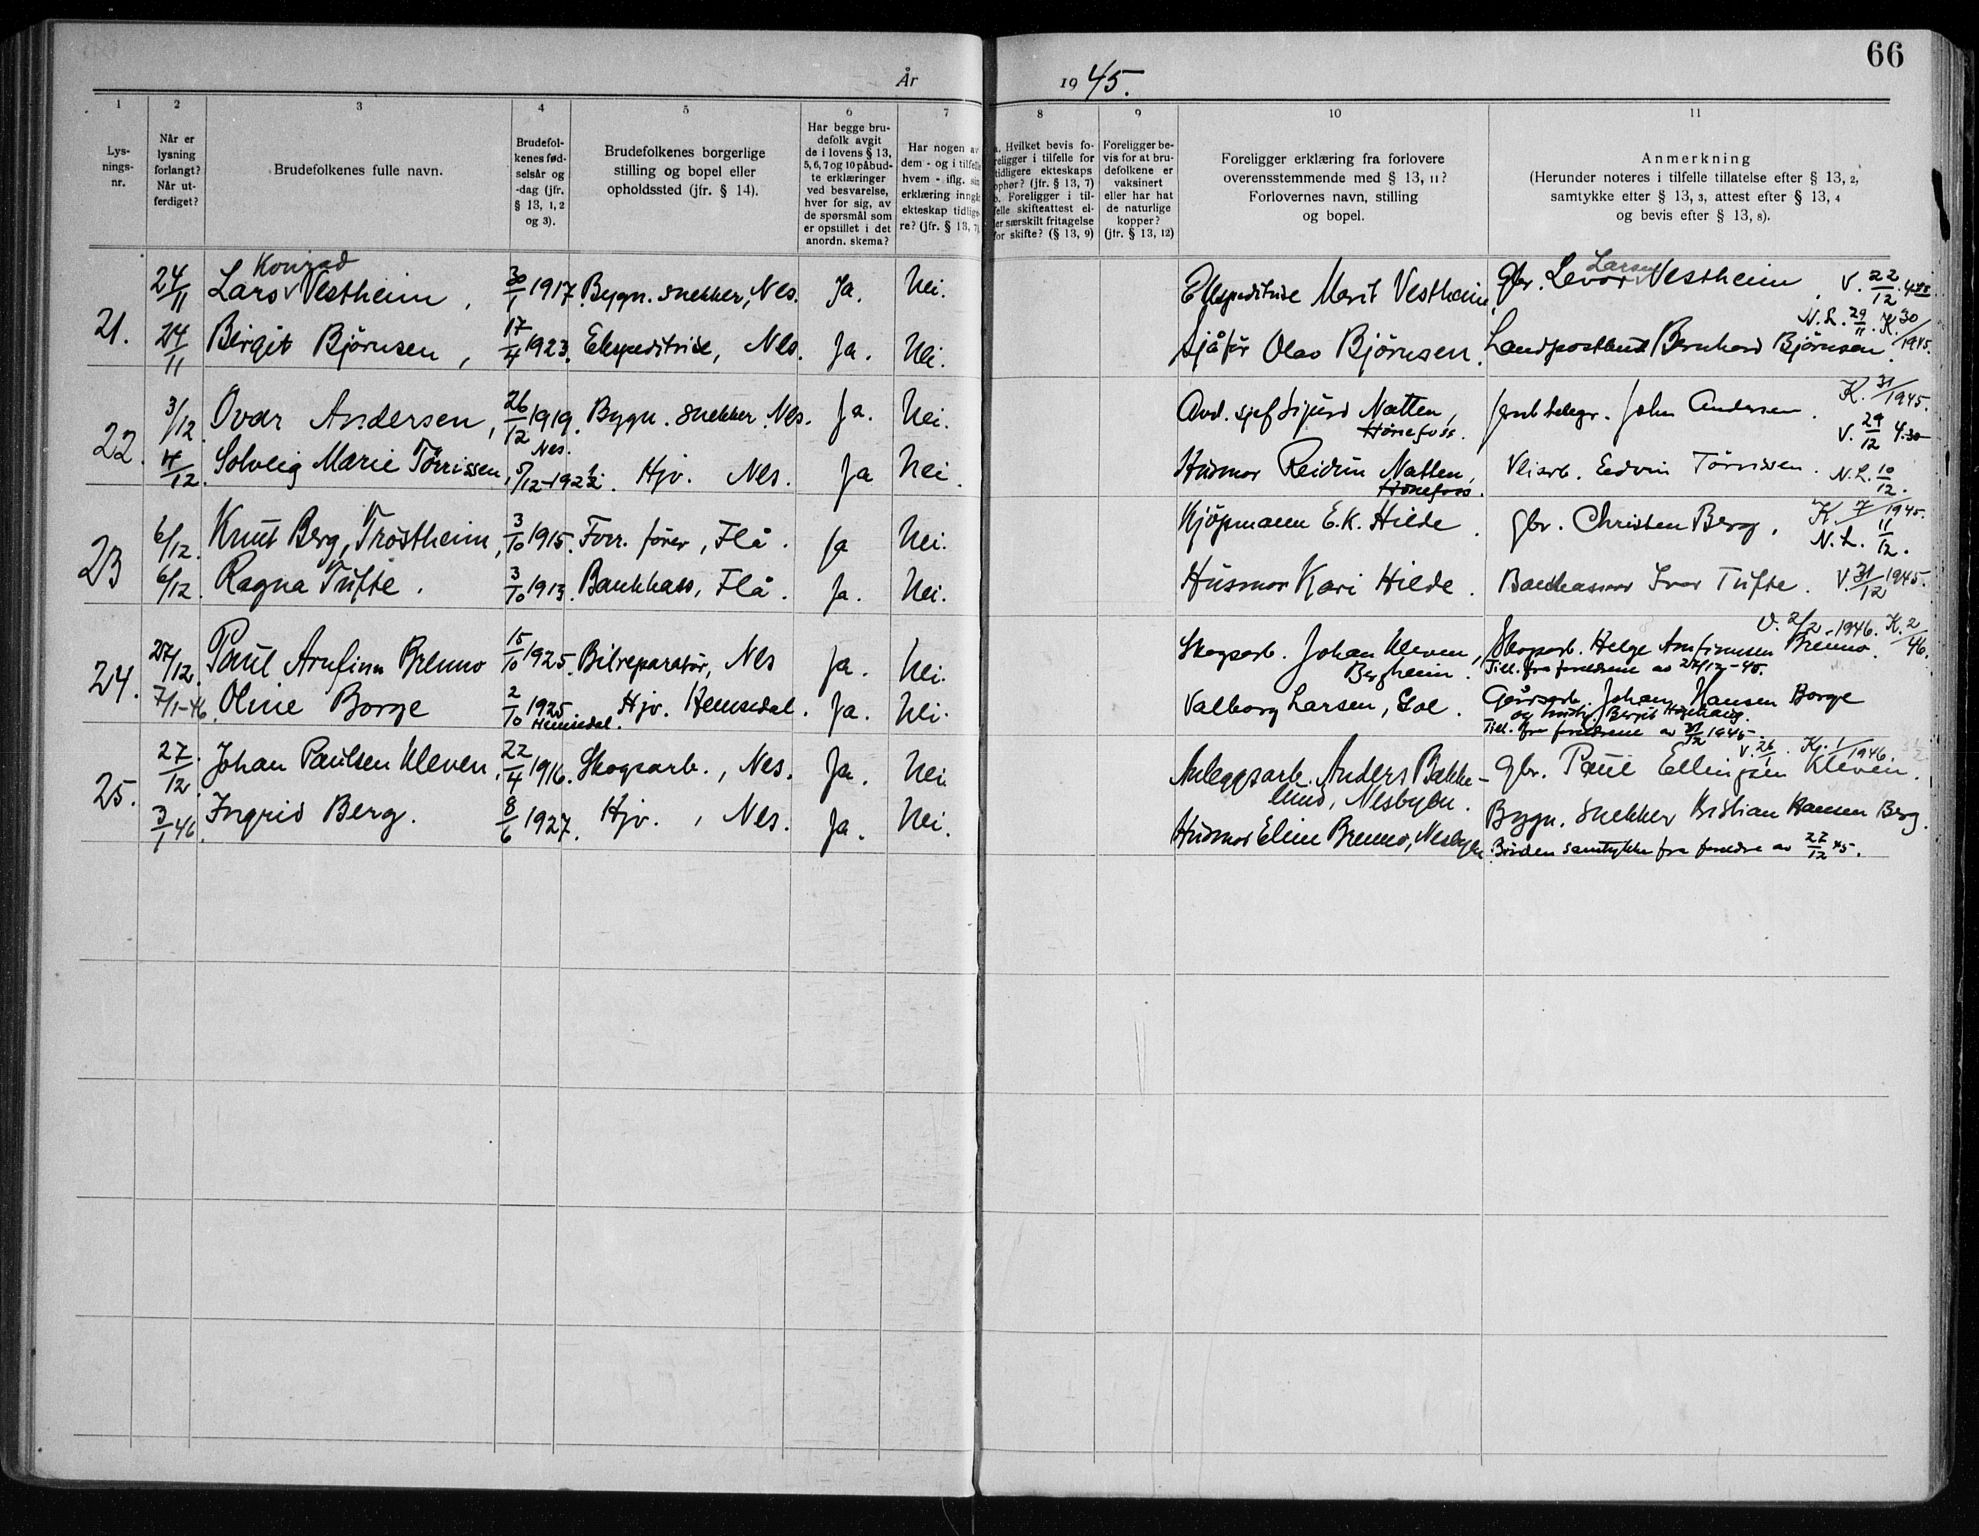 66
År 1945.
1 2 3 4 5 6 7 8 9 10 11
Lys-
nings-
nr.
Når er
lysning
forlangt?
Når ut-
ferdiget?
Brudefolkenes fulle navn.
Brudefol-
kenes fød-
selsår og
-dag (jfr.
§ 13, 1, 2
og 3).
Brudefolkenes borgerlige
stilling og bopel eller
opholdssted (jfr. § 14).
Har begge bru-
defolk avgit
de i lovens § 13,
5, 6, 7 og 10 påbud-
te erklæringer
ved besvarelse,
hver for sig, av
de spørsmål som
er opstillet i det
anordn. skema?
Har nogen av
dem - og i tilfelle
hvem - iflg. sin
erklæring inngå
ekteskap tidlige-
re? (jfr. § 13, 7)
a. Hvilket bevis fo-
religger i tilfelle for
tidligere ekteskaps
ophør? (jfr. § 13, 7)
b. Foreligger i til-
felle skifteattest el-
ler særskilt fritagelse
for skifte? (§ 13, 9)
Foreligger be-
vis for at bru-
defolkene er
vaksinert
eller har hat
de naturlige
kopper?
(jfr. § 13, 12)
Foreligger erklæring fra forlovere
overensstemmende med § 13, 11?
Forlovernes navn, stilling
og bopel.
Anmerkning
(Herunder noteres i tilfelle tillatelse efter § 13, 2,
samtykke efter § 13, 3, attest efter § 13, 4
og bevis efter § 13, 8).
21. 24/11 Lars Konrad Vestheim, 30/1 1917. Bygn. snekker, Nes. Ja. Nei. Ekspeditrise Marit Vestheim, gbr. Levor Larsen Vestheim. V. 22/12. 4
24/11 Birgit Bjørnsen, 17/4 1923. Ekspeditrise, Nes. Ja. Nei. Sjåfør Olav Bjørnsen. Landpostbud Bernhard Bjørnsen. N.L. 29/11. K. 30/1945.
22. 3/12. Ovar Andersen, 26/12 1919. Nes. Bygn. snekker, Nes. Ja. Nei. Avd. sjef Sigurd Natten, Hønefoss. John Andersen. K. 31/1945. V. 29/12 4.30
4/12. Solveig Marie Tørrissen, 5/12-1922. Hjv. Nes. Ja Nei. Husmor Reidun Natten, Hønefoss. Edvin Tørrissen. N.L. 10/12.
23 6/12. Knut Berg, Trøstheim, 3/10 1915. Forr. fører, Flå. Ja Nei. Kjøpmann E.K. Hilde. gbr. Christen Berg. K. 7/1945. N.L. 11/12.
6/12. Ragna Tufte. 3/10 1913. Bankkass, Flå. Ja. Nei. Husmor Kari Hilde. Bankkasserer Ivar Tufte. V. 31/12 1945.
24. 27/12. Paul Arnfinn Brenno 15/10 1925. Bilreparatør, Nes Ja. Nei. Skogsarb. Johan Kleven, Bergheim. Skogsarb. Helge Arnfinnsen Brenno. V. 2/2-1946. K. 2/46.
Till. fra foreldrene av 27/12-45.
7/1-46. Oline Borge 2/10 1925. Hemsedal. Hjv. Hemsedal. Ja. Nei. Valborg Larsen, Gol. Gårdsarb. Johan Hansen Borge
Till. fra foreldrene av 31/12 1945.
25. 27/12. Johan Paulsen Kleven, 22/4 1916. Skogsarb., Nes. Ja. Nei. Anleggsarb. Anders Bakke-
lund, Nesbyen. gbr. Paul Ellingsen Kleven. V. 26/1. K. 1/1946.
3/1 46. Ingrid Berg. 8/6 1927. Hjv., Nes. Ja. Nei. Husmor Eline Brenno, Nesbyen. Bygn. snekker Kristian Hansen Berg.
Bruden samtykke fra foreldre av 22/12 45.